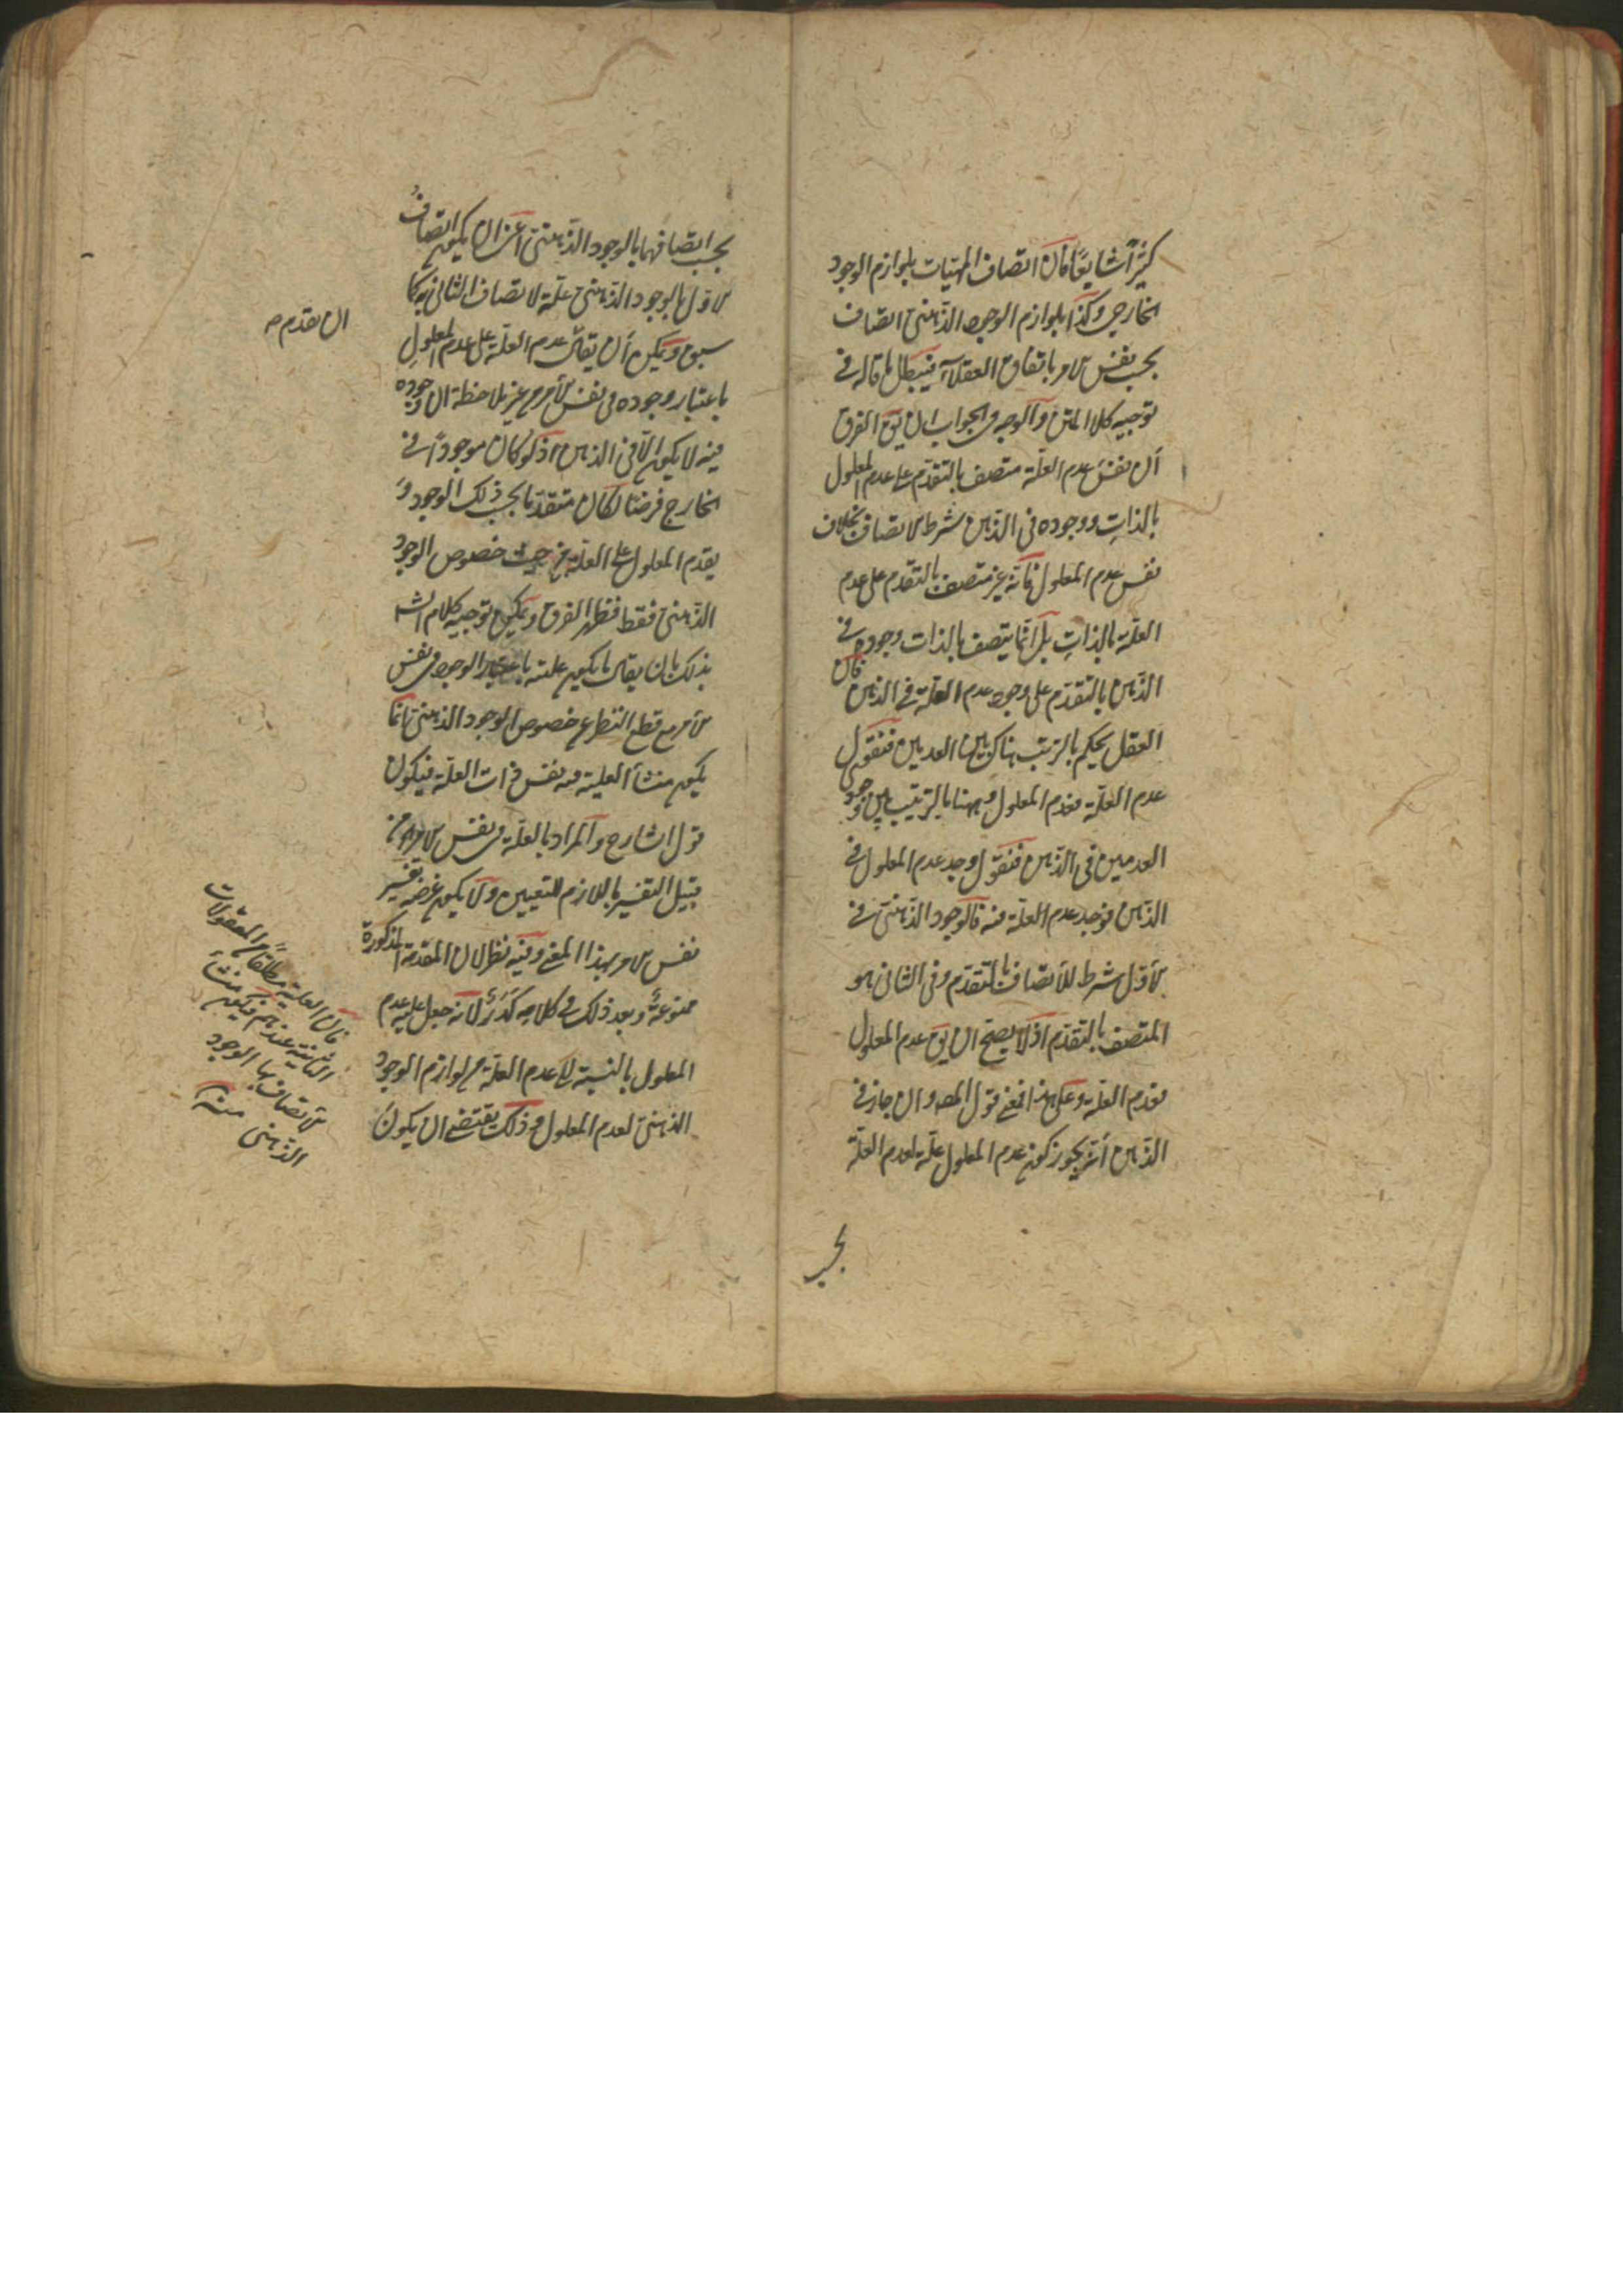 كثيرًا شايعًا فان اتصاف المهيّات بلوازم الوجود
الخارجي وكذا بلوازم الوجود الذهني اتصاف
بحسب نفس الامر باتفاق العقلاء فيبطل ما قاله في
توجيه كلام المتن والوجه في الجواب ان يق الفرق
أن نفس عدم العلّة متصف بالتقدّم على عدم المعلول
بالذات ووجوده في الذهن شرط الاتصاف بخلاف
نفس عدم المعلول فانّه غير متصف بالتقدم على عدم
العلّة بالذات بل انّما يتصف بالذات وجوده في
الذهن بالتقدّم على وجود عدم العلّة في الذهن فان
العقل يحكم بالترتب هناك بين العدمين فنقول
عدم العلّة فعدم المعلول وههنا بالترتيب بين وجود
العدمين في الذهن فنقول وجد عدم المعلول في
الذهن فوجد عدم العلّة فيه فالوجود الذهني في
الأوّل شرط للأتصاف بالتقدّم وفي الثاني هو
المتصف بالتقدّم اذ لا يصحّ ان يق عدم المعلول
فعدم العلّة وعلى هذا فمعنى قول المصـ وان جاز في
الذهن أنّه يجوز كون عدم المعلول علّة لعدم العلّة
بحسب
بحسب اتصافهما بالوجود الذهني أعني ان يكون اتصاف
الاوّل بالوجود الذهني علّة لاتصاف الثاني به كما
سبق ويمكن أن يقال عدم العلّة على عدم المعلول
ان تقدم صـ
باعتبار وجوده في نفس الأمر من غير ملاحظة ان وجوده
فيه لا يكون الّا في الذهن اذ لو كان موجودًا في
الخارج فرضًا لكان متقدّمًا بحسب ذلك الوجود و
يقدم المعلول على العلّة من حيث خصوص الوجود
الذهني فقط فظهر الفرق ويمكن توجيه كلام الشـ
بذلك بان يقال ما يكون علته باعتبار الوجود في نفس
الأمر مع قطع النظر عن خصوص الوجود الذهني فانّما
يكون منشأ العلية فيه نفس ذات العلّة فيكون
قول الشارح والمراد بالعلّة في نفس الامر من
قبيل التفسير باللازم للتعيين ولا يكون غرضه تفسير
نفس الامر بهذا المعنى وفيه نظر لان المقدمة المذكورة
ممنوعةٌ وبعد ذلك في كلامه كَدَرٌ لأنّه جعل علية عدم
المعلول بالنسبة إلى عدم العلّة من لوازم الوجود
الذهني لعدم المعلول وذلك يقتضي ان يكون
فان العلية مطلقًا من المعقولات
الثانية عندهم فيكون منشأ
الاتصاف بها الوجود
الذهني منه